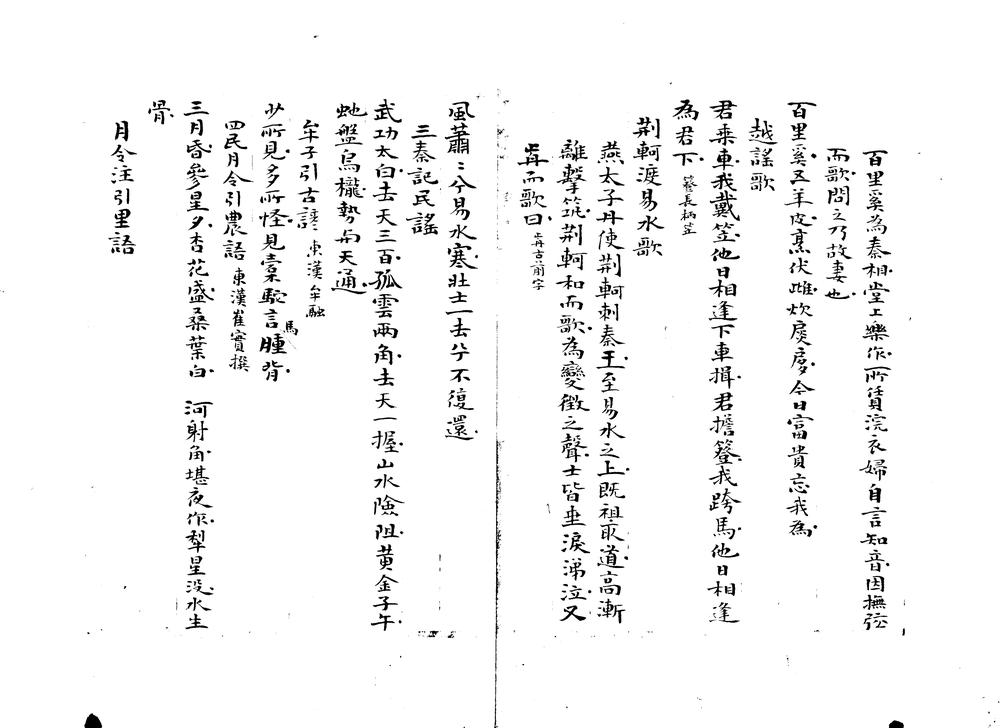 百里奚為秦相堂上樂作所賃浣衣婦自言知音因撫弦
而歌問之乃故妻也
百里奚五羊皮烹伏雌炊扊扅今日富貴忘我為
越謠歌
君乘車我戴笠他日相逢下車揖君擔簦我跨馬他日相逢
為君下 簦長柄笠
荆軻渡易水歌
燕太子丹使荆軻刺秦王至易水之上既祖取道高漸
離擊筑荆軻和而歌為變徵之聲士皆垂淚涕泣又
歬而歌曰 歬古前字
風蕭〻兮易水寒壯士一去兮不復還
三秦記民謠
武功太白去天三百孤雲兩角去天一握山水險阻黄金子午
虵盤烏櫳勢与天通
牟子引古諺 東漢牟融
少所見多所怪見橐駝言馬腫背
四民月令引農語 東漢崔寔撰
三月昏參星夕杏花盛桑葉白 河射角堪夜作犁星没水生
骨
月令注引里語